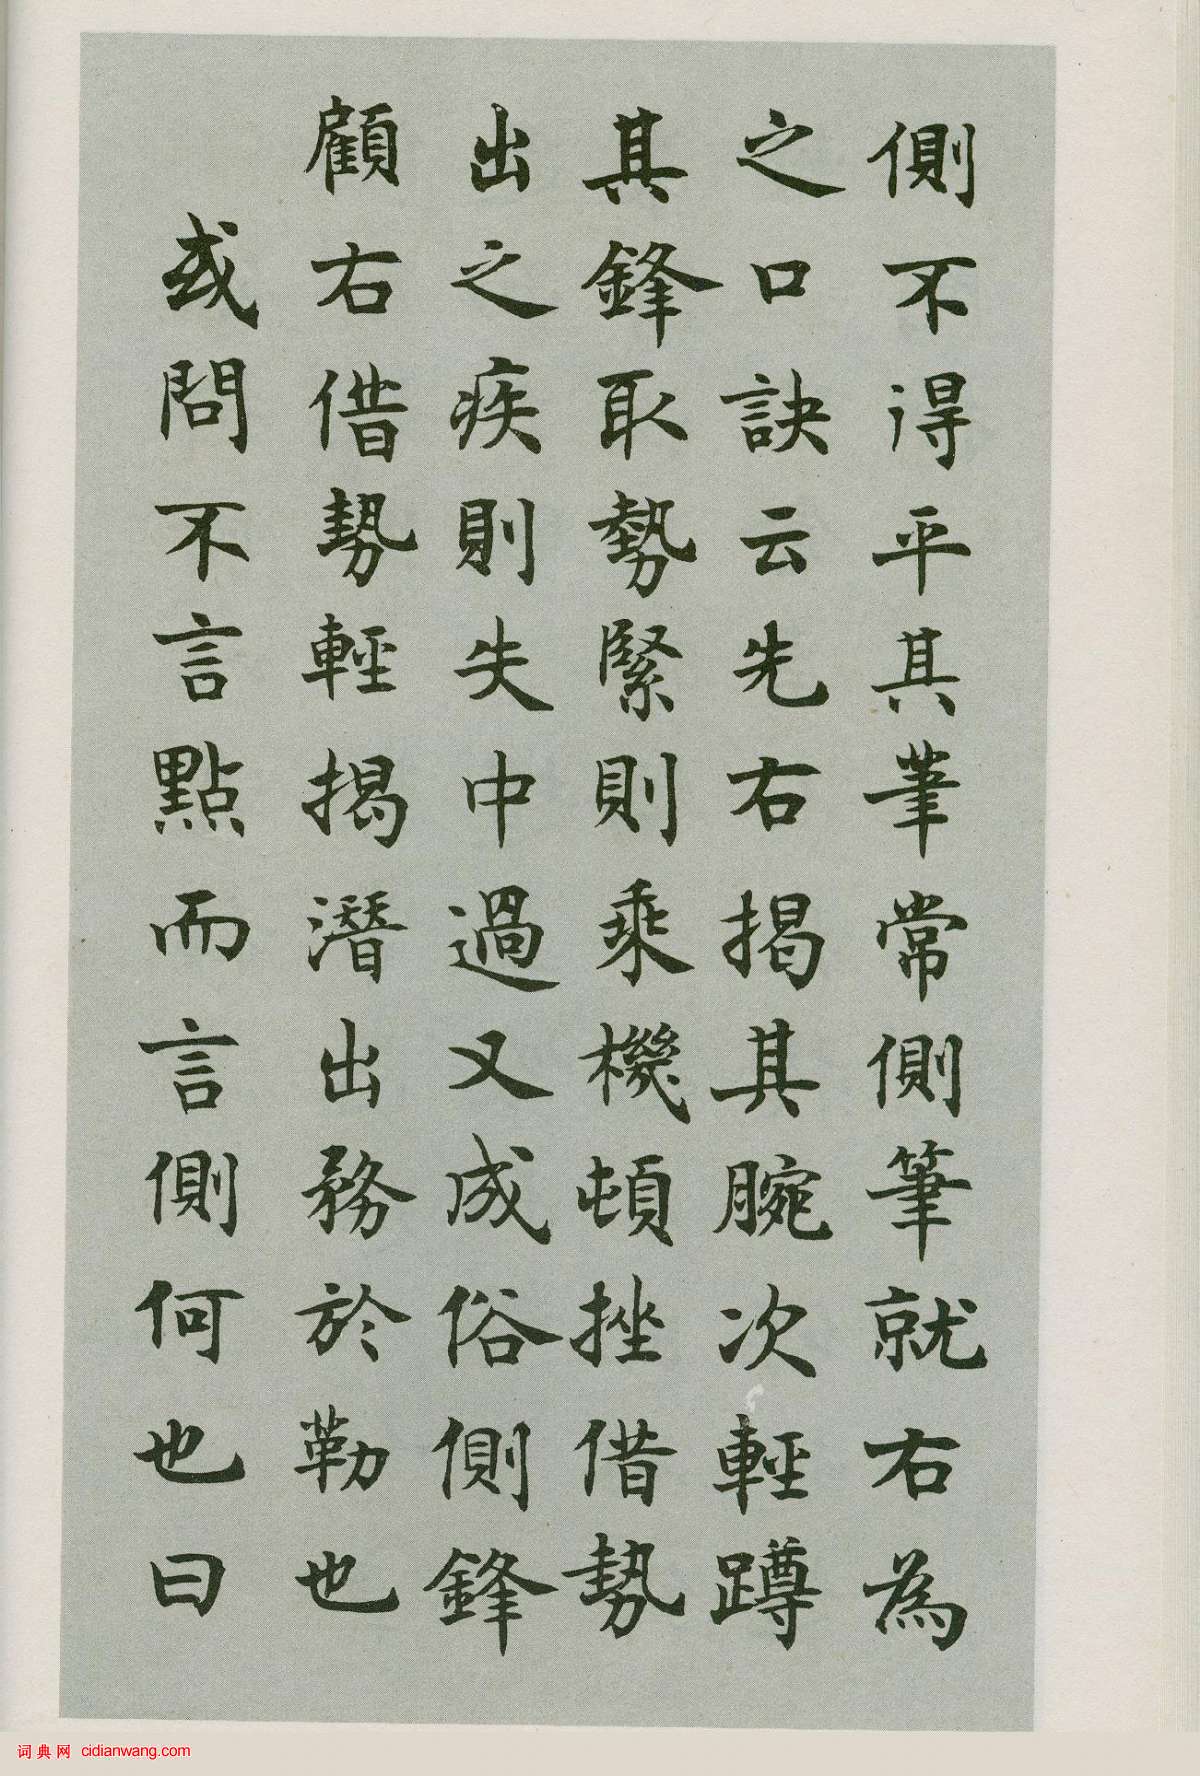 側不得平其筆常側筆就右為
之口訣云先右揭其腕次輕蹲
其鋒取勢緊則乘機頓挫借勢
出之疾則失中過又成俗側鋒
顧右借勢輕揭潛出務於勒也
或問不言點而言側何也曰
词典网 cidianwang.com